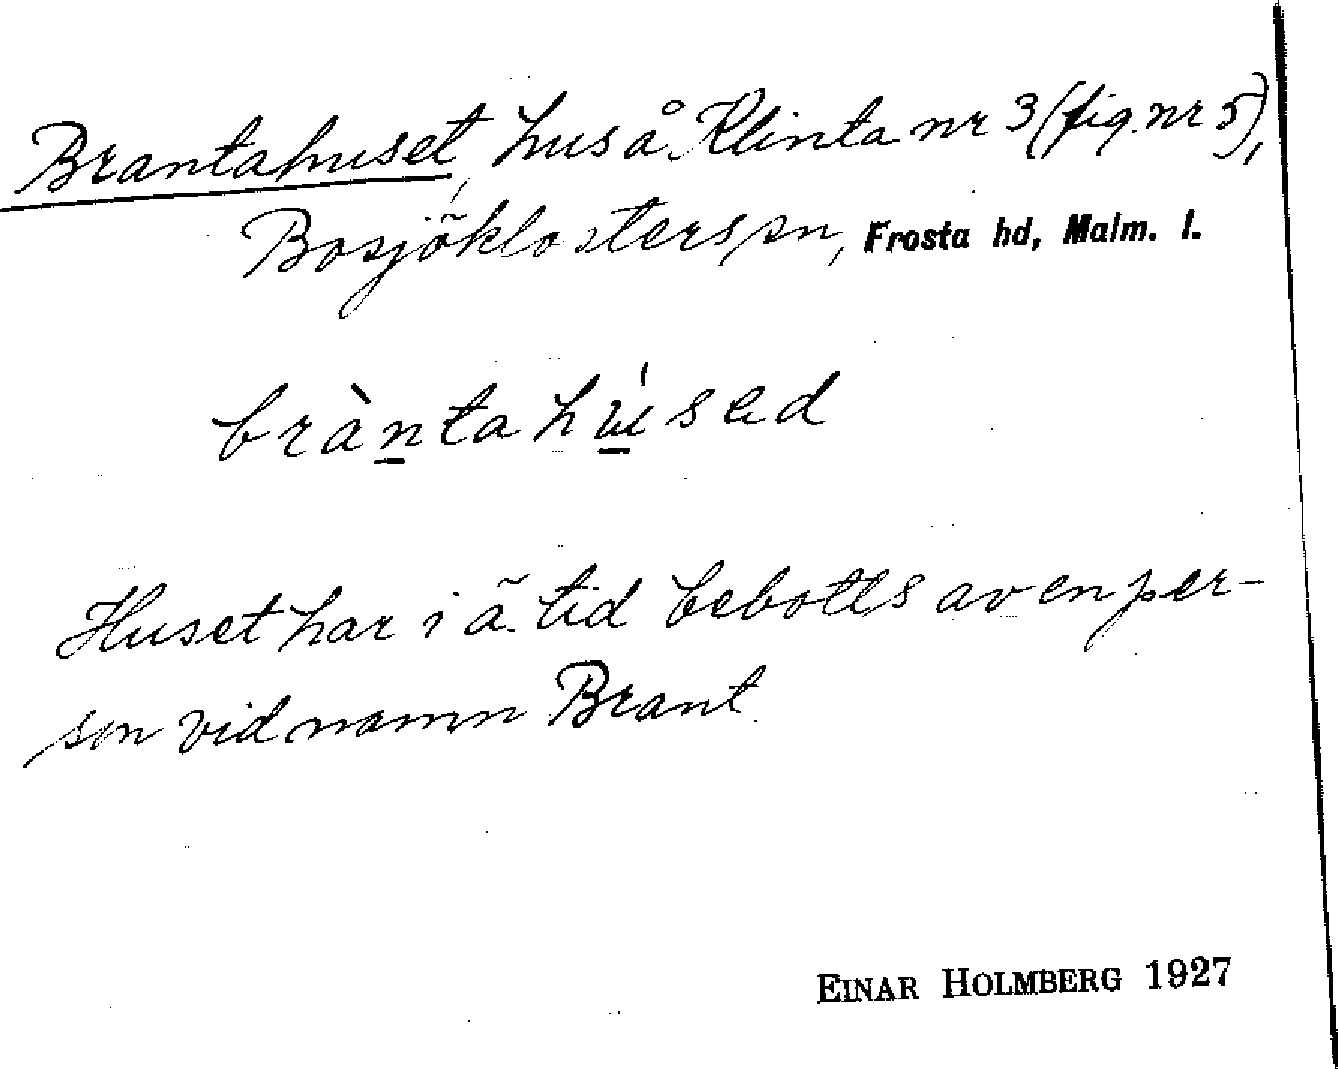 Brantahuset, hus å Klinta nr 3 (fig. nr 5),
Bosjöklosters sn, Frosta hd, Malm. l.
bràntahúsed
Huset har i ä. tid bebotts av en per-
son vid namn Brant.
EINAR HOLMBERG 1927